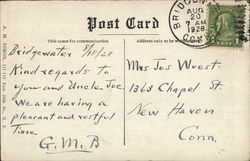 Post Card
This space for correspondence
Address only to be written here
BRIDGEWATER
AUG
20
7 AM
1928
CONN.
Bridgewater 8/20/28
Kind regards to
you and Uncle Joe.
We are having a
pleasant and restful
time.
G. M. B
Mrs Jos Wuest
1363 Chapel St
New Haven
Conn.